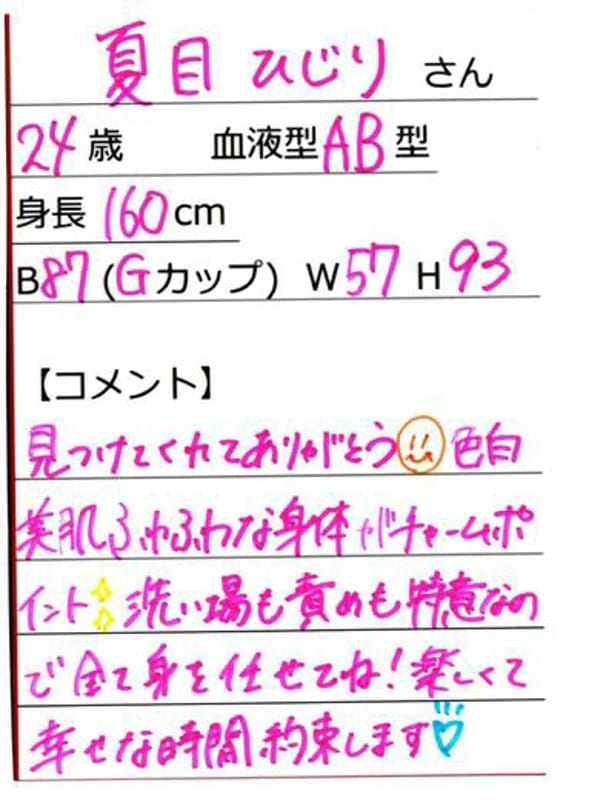 夏目 ひじり さん
24歳 血液型AB型
身長 160cm
B87(Gカップ) W57 H93
【コメント】
見つけてくれてありがとう 色白
美肌ふわふわな身体がチャームポ
イント 洗い場も責めも特意なの
で全て身を任せてね!楽しくて
幸せな時間約束します